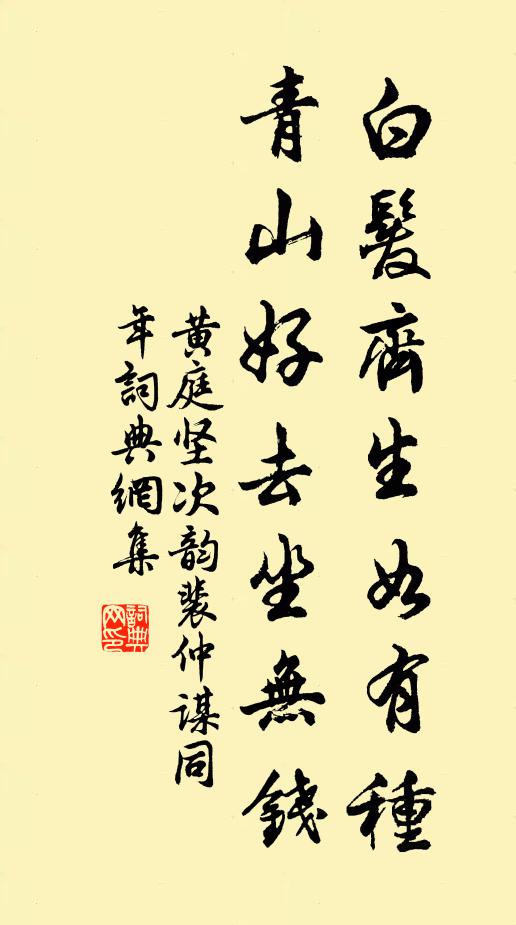 白髮齊生如有種
青山好去坐無錢
黄庭坚次韵裴仲谋同
年詞典網集
詞典
网印